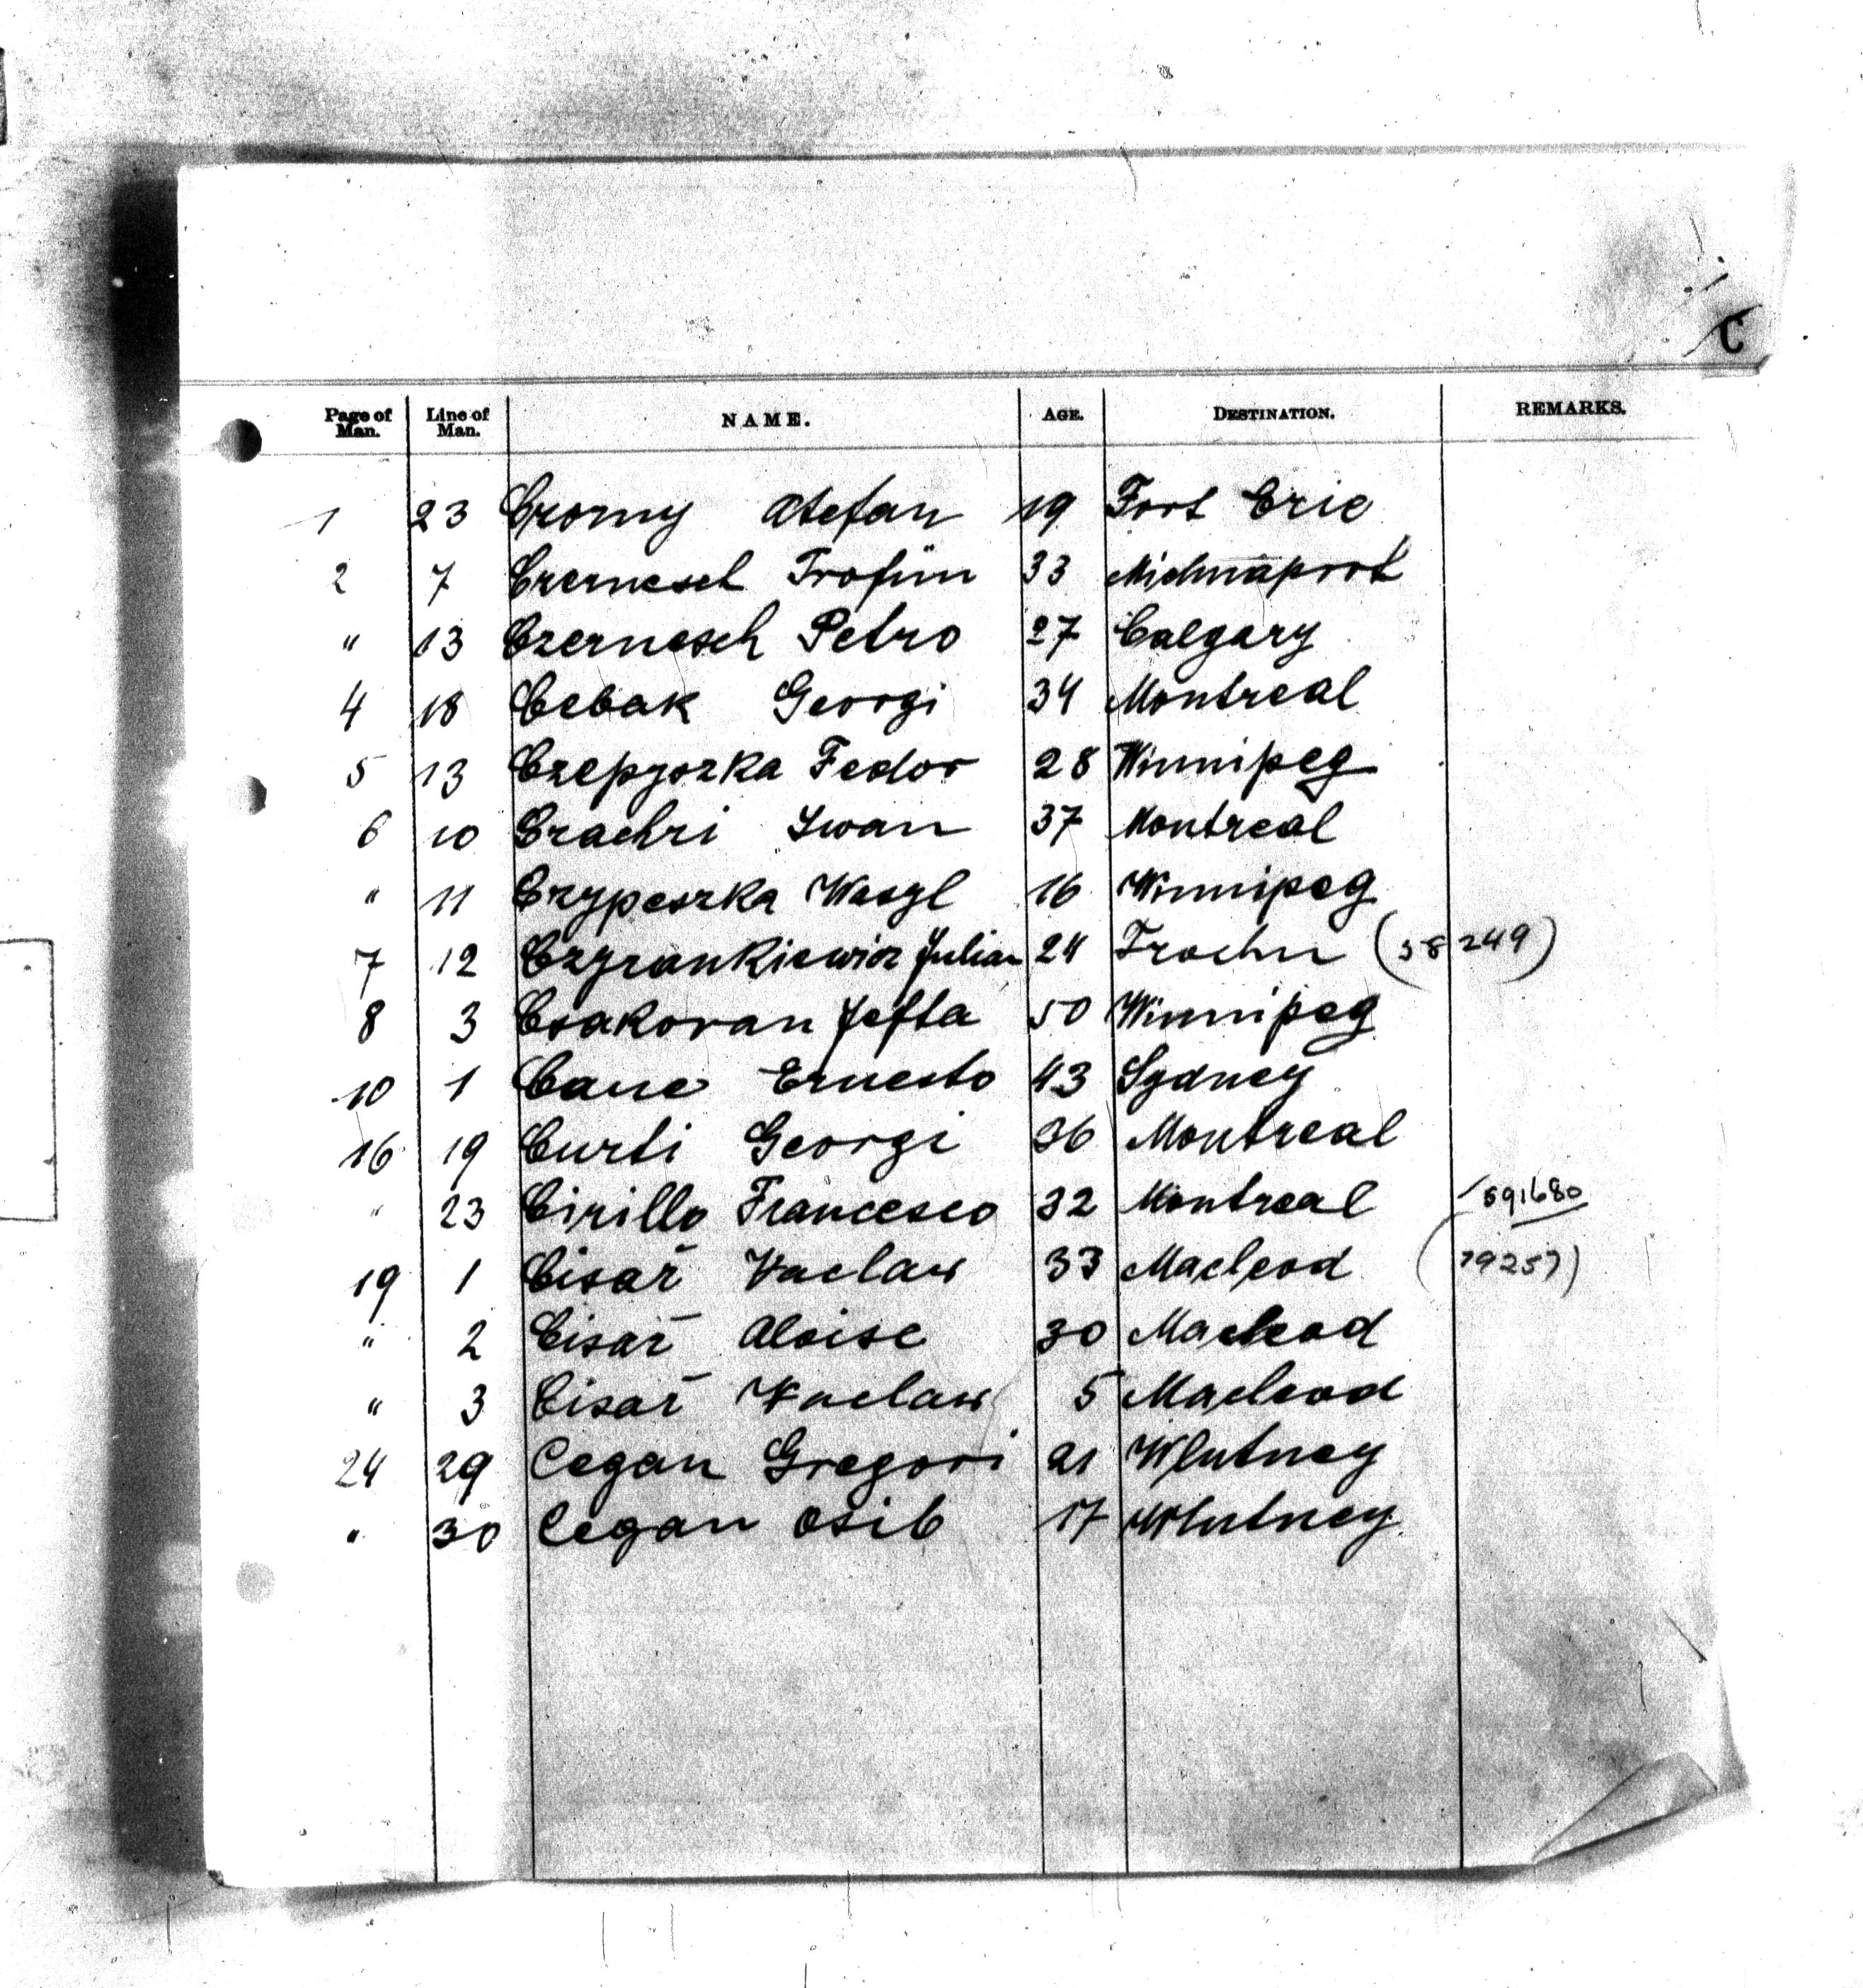 C
Page of Man. Line of Man. NAME. AGE. DESTINATION. REMARKS.
1 23 Czorny Stefan 19 Fort Erie
2 7 Czernesch Trofim 33
" 13 Czernesch Petro 27 Calgary
4 18 Cebak Georgi 34 Montreal
5 13 Fedor 28 Winnipeg
6 10 Iwan 37 Montreal
" 11 Czypeszka Wasyl 16 Winnipeg
7 12 Julian 24 Trochu (58249)
8 3 Csakovan Jefta 50 Winnipeg
10 1 Cane Ernesto 43 Sydney
16 19 Curti Georgi 36 Montreal
" 23 Cirillo Francesco 32 Montreal 591680
19 1 Cisař Vaclaw 33 Macleod (79257)
" 2 Cisař Aloise 30 Macleod
" 3 Cisař Vaclaw 5 Macleod
24 29 Cegan Gregori 21 Whitney
" 30 Cegan Osib 17 Whitney